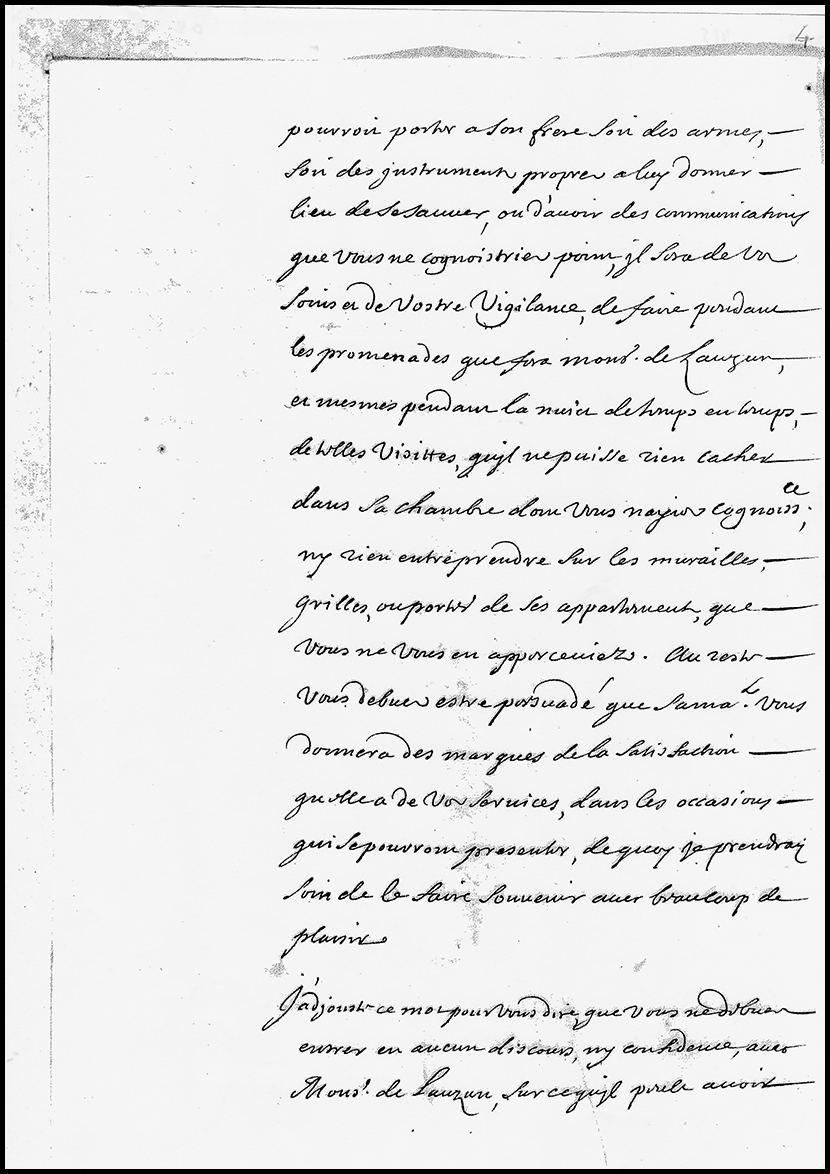 4
pourroit porter a son frere soit des armes,
soit des jnstruments propres a luy donner
lieu de se sauver, ou d'auoir des communications
que Vous ne cognoistriés point, jl sera de Vos
soins et de Vostre Vigilance, de faire pendant
les promenades que fera mons.r de Lauzun,
et mesmes pendant la nuict de temps en temps,
de telles Visittes, qu'jl ne puisse rien cacher
dans sa chambre dont Vous n'ayiés cognoiss.ce
ny rien entreprendre sur les murailles,
grilles, ou portes de ses appartements, que
Vous ne Vous en apperceuiez. Au reste
Vous debués estre persuadé que sa ma.té Vous
donnera des marques de la satisfaction
qu'elle a de Vos seruices, dans les occasions
qui se pourront presenter, de quoy je prendray
soin de le faire souuenir auec beaucoup de
plaisir.
J'adjouste ce mot pour Vous dire, que Vous ne debués
entrer en aucun discours, ny confidence, auec
Mons.r de Lauzun, sur ce qu'jl peult auoir